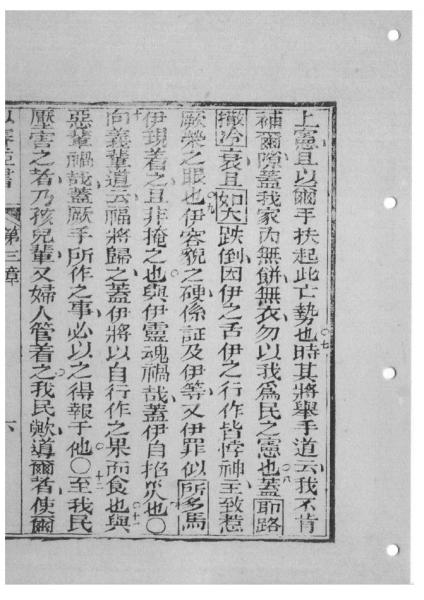 上憲且以爾手扶起此亡勢也時其將舉手道云我不肯
補爾隙蓋我家內無餅無衣勿以我爲民之憲也蓋耶路
撒冷衰且如大跌倒因伊之舌伊之行作皆悖神主致惹
厥榮之眼也伊容貌之硬係証及伊等又伊罪似所多馬
伊現着之且非掩之也與伊靈魂禍哉蓋伊自招災也〇
向義輩道云福將歸之蓋伊將以自行作之果而食也與
惡輩禍哉蓋厥手所作之事必以之得報于他〇至我民
壓害之者乃孩兒輩又婦人管着之我民歟導爾者使爾
以賽亞書 第三章 六